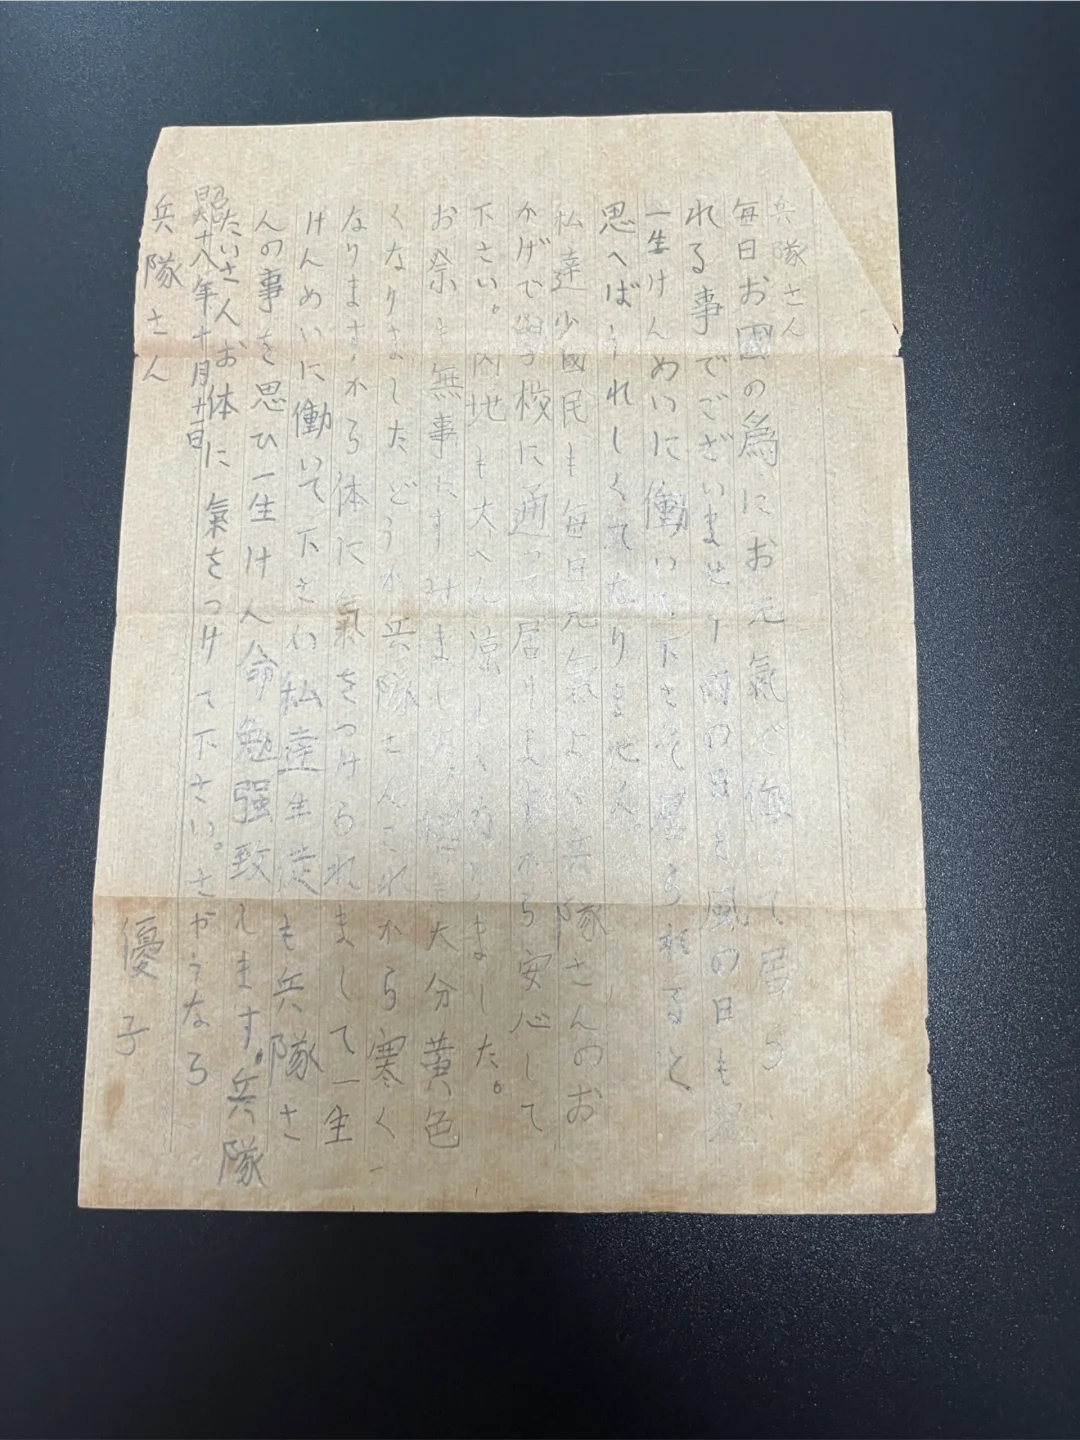 兵隊さん
毎日お國の為にお元氣で働いて居ら
れる事でございませう雨の日も風の日も
一生けんめいに働いて下さて居られると
思へばうれしくてなりません。
私達少國民も毎日元氣よく兵隊さんのお
かげで學校に通って居りますから安心して
下さい。内地も大へん涼しくなりました。
お祭も無事にすみました。も大分黄色
くなりましたどうか兵隊さんこれから寒く
なりますから体に氣をつけられまして一生
けんめいに働いて下さい私達生徒も兵隊さ
んの事を思ひ一生けん命勉強致します。兵隊
たいさんお体に氣をつけて下さい。さやうなら
昭十八年十月十一日
兵隊さん
優子